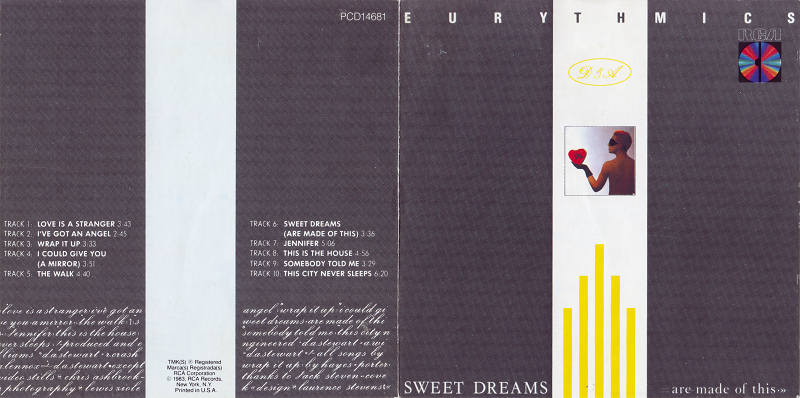 PCD14681
TRACK 1· LOVE IS A STRANGER 3·43
TRACK 2· I'VE GOT AN ANGEL 2·45
TRACK 3· WRAP IT UP 3·33
TRACK 4· I COULD GIVE YOU
(A MIRROR) 3·51
TRACK 5· THE WALK 4·40
TRACK 6· SWEET DREAMS
(ARE MADE OF THIS) 3·36
TRACK 7· JENNIFER 5·06
TRACK 8· THIS IS THE HOUSE 4·56
TRACK 9· SOMEBODY TOLD ME 3·29
TRACK 10· THIS CITY NEVER SLEEPS 6·20
love is a stranger·ive got an
ve you a mirror·the walk
·Jennifer·this is the house·
ver sleeps · produced and e
lliams · da stewart · r crash
a lennox · da stewart · except
video stills · chris ashbrook·
photography · lewis ziole
TMK(S) ® Registered
Marca(s) Registrada(s)
RCA Corporation
© 1983, RCA Records,
New York, N.Y.
Printed in U.S.A.
angel·wrap it up·i could gi
weet dreams·are made of thi
somebody told me·this city n
ngineered·da stewart·a wi
·da stewart·all songs by
wrap it up by hayes·porter·
thanks to jack steven·cove
design·laurence stevens
EURYTHMICS
RCA
DSA
SWEET DREAMS
are made of this